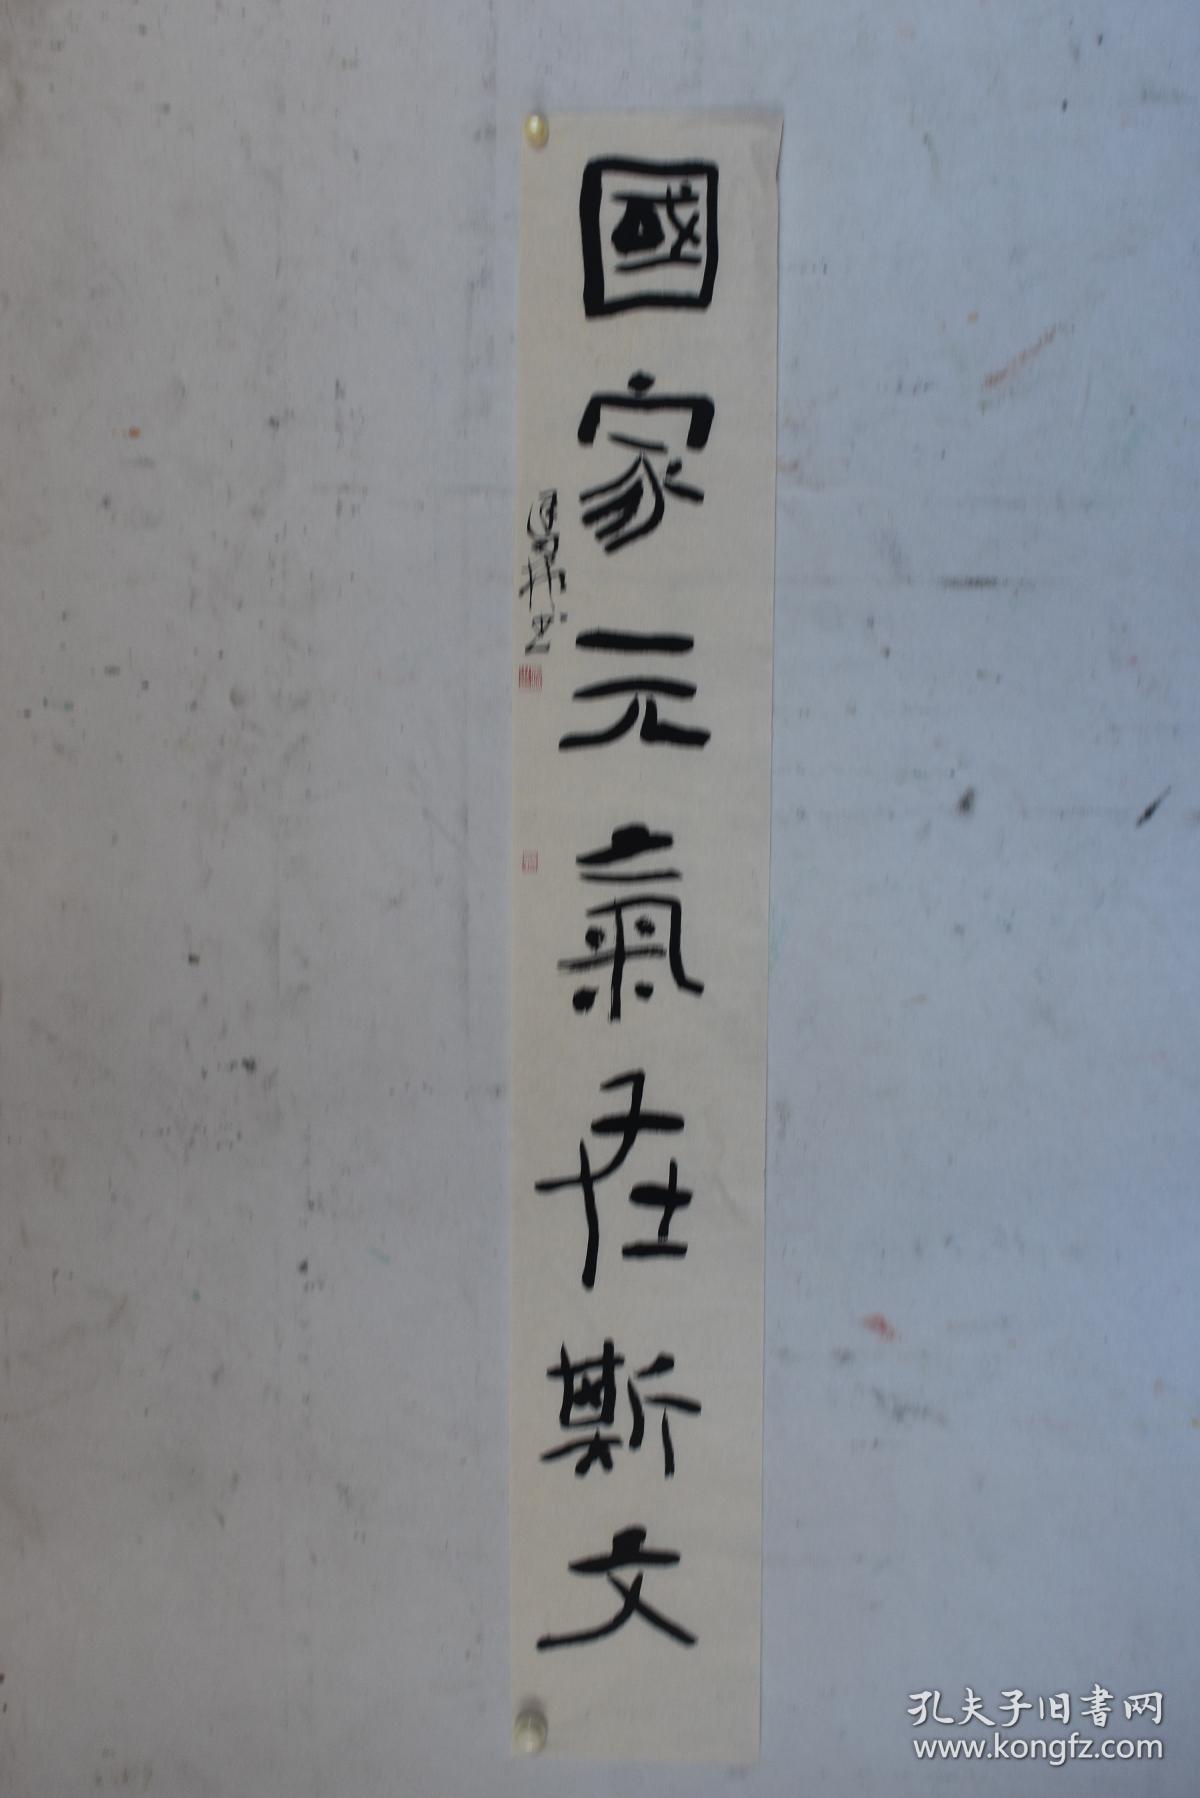 國家元氣在斯文
孔夫子旧書网
www.kongfz.com